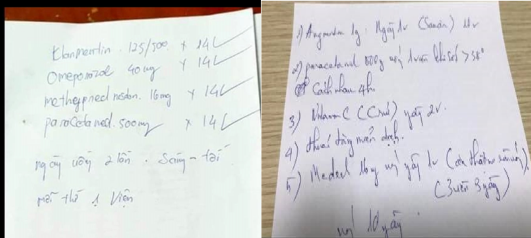 Klamentin. 125/500 x 14
Omeprazol 40mg x 14
methylpred nisolon. 16mg x 14
paracetamol. 500mg x 14
ngày uống 2 lần. Sáng - tối
mỗi thứ 1 viên
1) Augmentin 1g. Ngày 2v (Sandoz)
2) paracetamol 500g uống 1 viên khi sốt > 38°
Cách nhau 4h
3) Vitamin C ngày 2v.
4) thuốc tăng miễn dịch.
5) Medrol 16g uống ngày 1v
(3 viên 3 ngày)
uống 10 ngày.